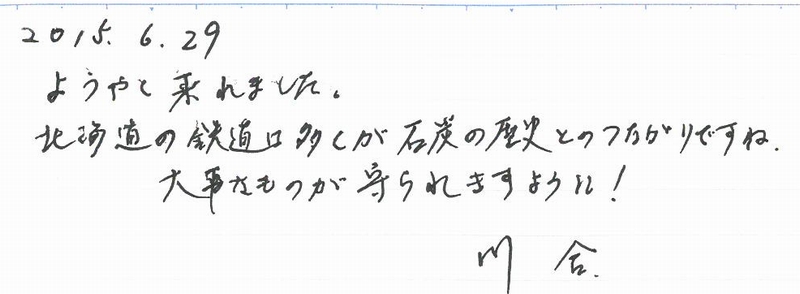 2015. 6. 29
ようやと乗れました。
北海道の鉄道は多くが石炭の歴史とのつながりですね.
大事なものが守られますように!
川合.